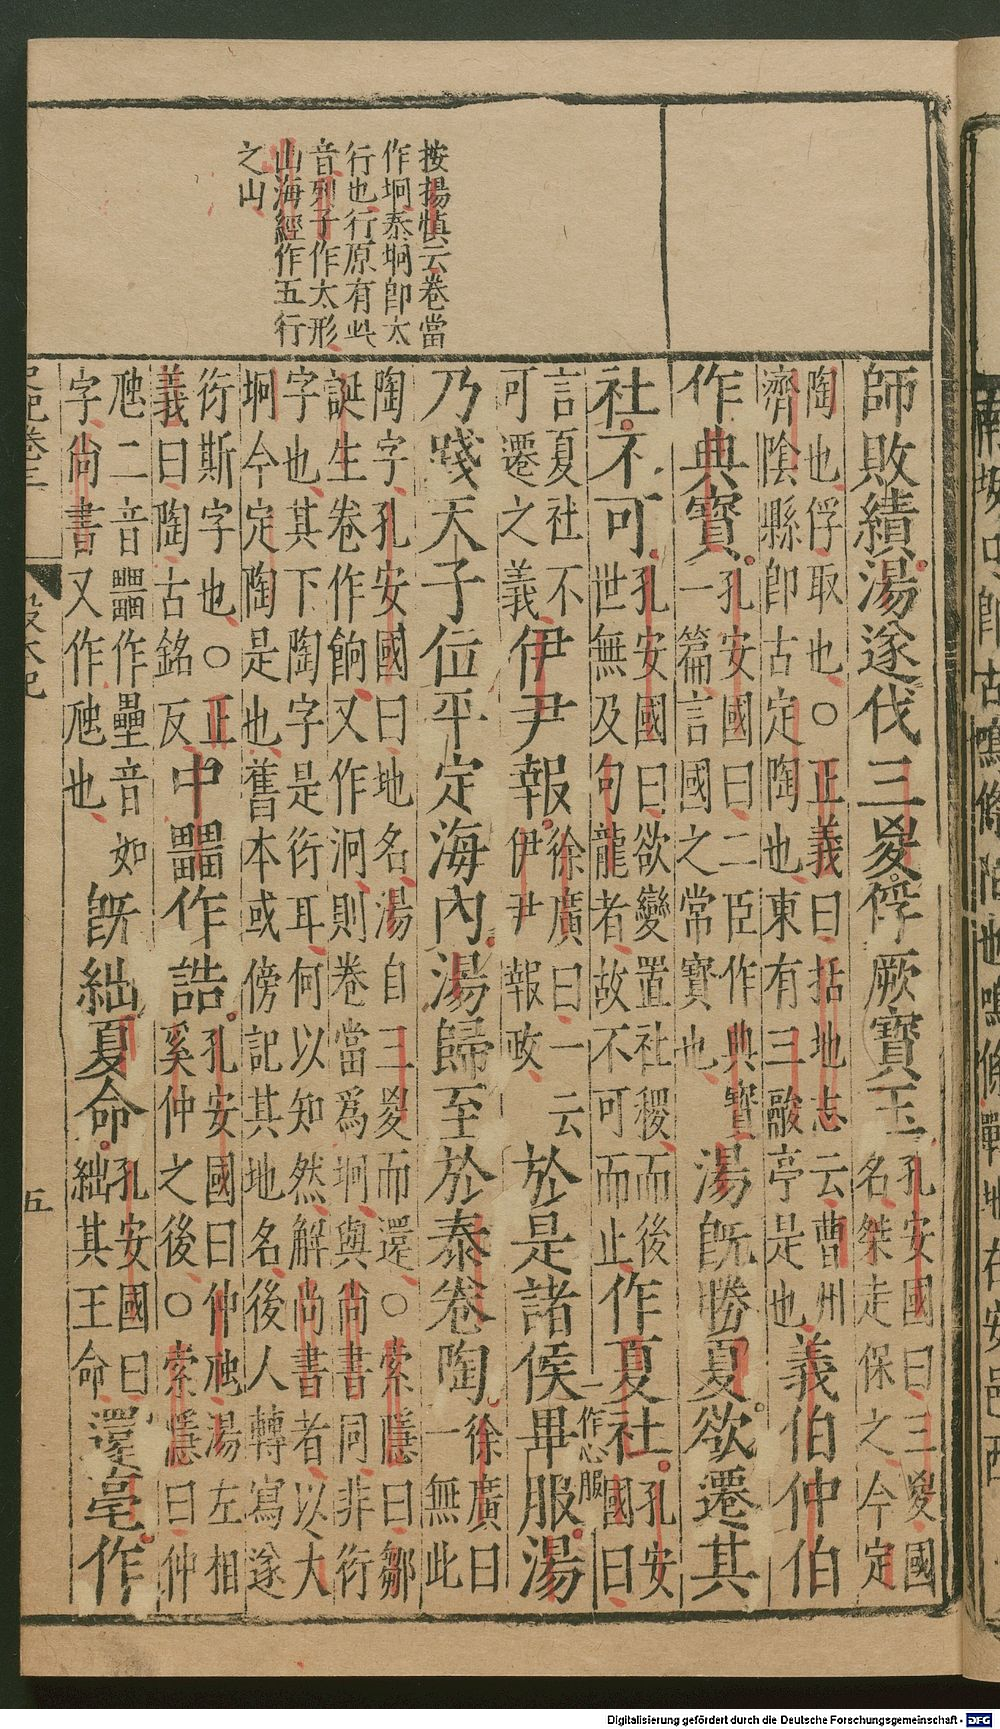 按揚慎云卷當
作坰泰坰卽太
行也行原有此
音列子作太形
山海經作五行
之山
師敗績湯遂伐三㚇俘厥寶玉孔安國曰三㚇國
名桀走保之今定
陶也俘取也○正義曰括地志云曹州
濟陰縣卽古定陶也東有三鬷亭是也義伯仲伯
作典寶孔安國曰二臣作典寶
一篇言國之常寶也湯旣勝夏欲遷其
社不可孔安國曰欲變置社稷而後
世無及句龍者故不可而止作夏社孔安
國曰
言夏社不
可遷之義伊尹報徐廣曰一云
伊尹報政於是諸侯畢服一作心服湯
乃踐天子位平定海內湯歸至於泰卷陶徐廣曰
一無此
陶字孔安國曰地名湯自三㚇而還○索隱曰鄒
誕生卷作餉又作泂則卷當爲坰與尙書同非衍
字也其下陶字是衍耳何以知然解尙書者以大
坰今定陶是也舊本或傍記其地名後人轉寫遂
衍斯字也○正
義曰陶古銘反中𤳳作誥孔安國曰仲虺湯左相
奚仲之後○索隱曰仲
虺二音𤳳作壘音如
字尙書又作虺也旣絀夏命孔安國曰
絀其王命還亳作
史記卷三
殷本紀
五
Digitalisierung gefördert durch die Deutsche Forschungsgemeinschaft - DFG